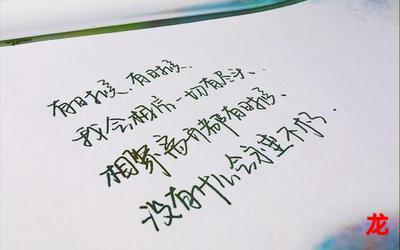 有时候，有时候，
我会相信一切有尽头、
相聚离开都有时候、
没有什么会永垂不朽.
龙